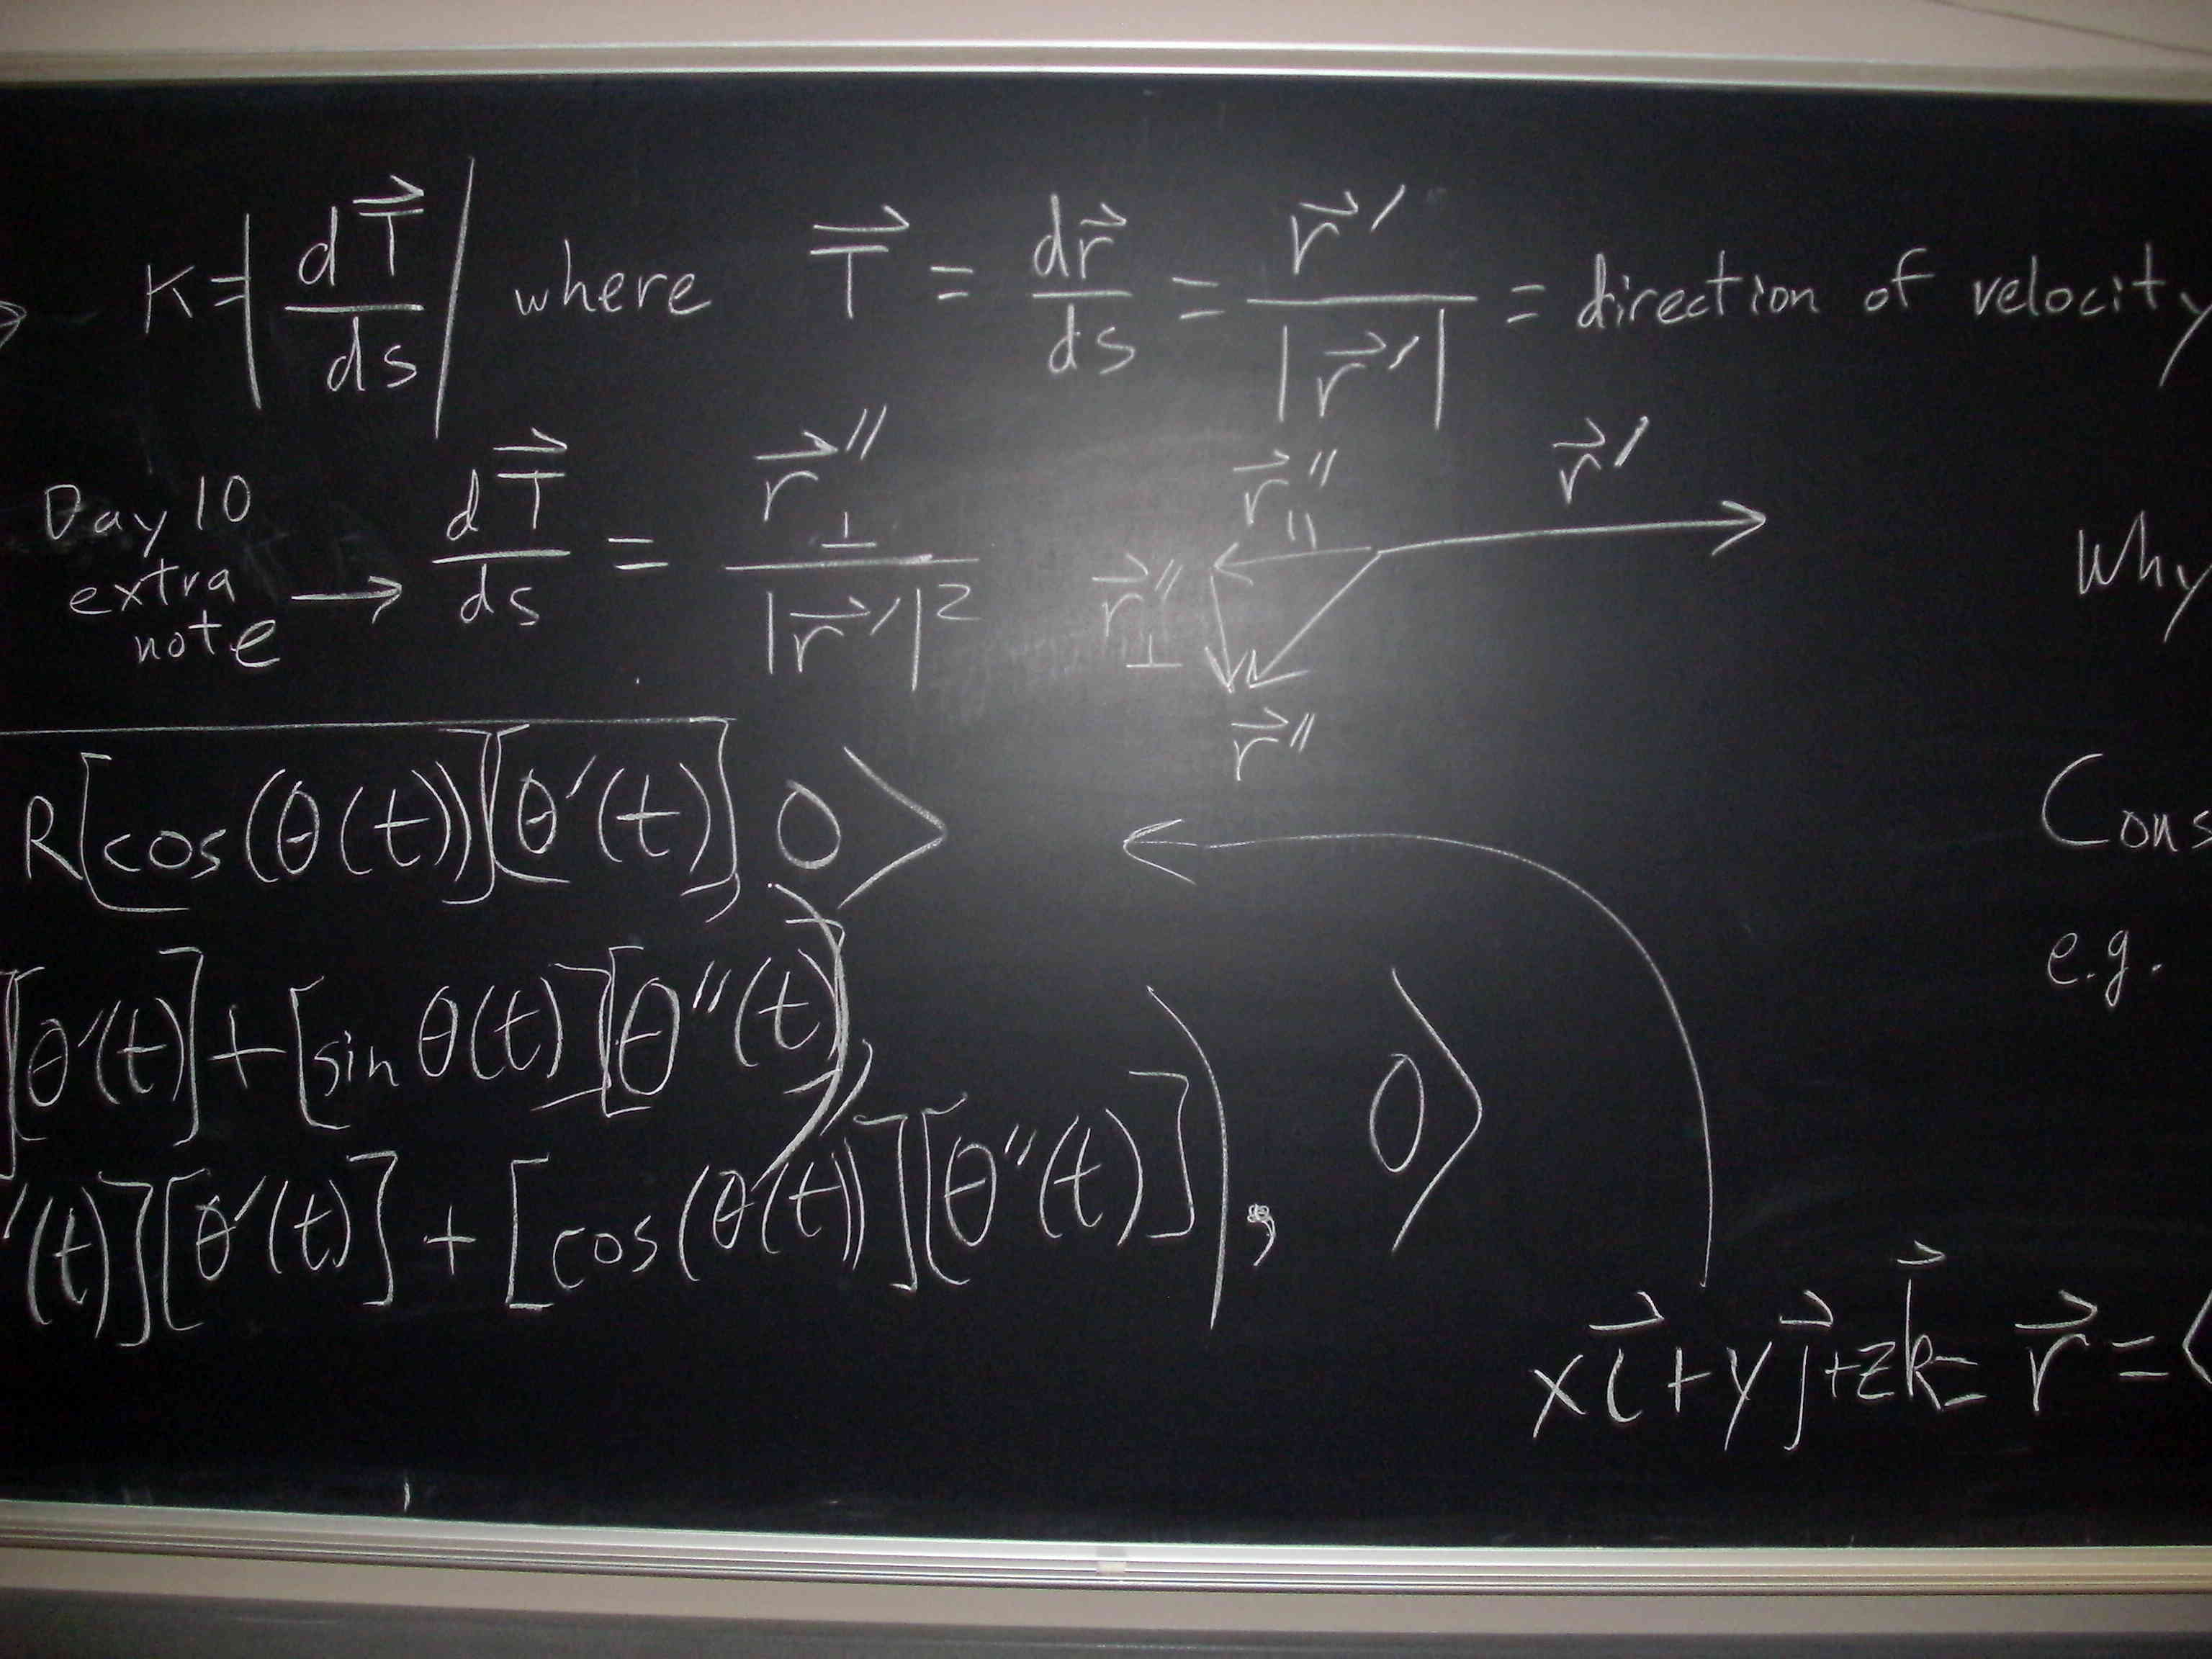 K = | dT⃗/ds | where T⃗ = dr⃗/ds = r⃗′/|r⃗′| = direction of velocity
Day 10
extra
note → dT⃗/ds = r⃗″⊥/|r⃗′|²
r⃗″∥
r⃗′
r⃗″⊥
r⃗″
Why
R[cos(θ(t))][θ′(t)], 0⟩
Cons
e.g.
][θ′(t)] + [sin θ(t)][θ″(t)]),
′(t)][θ′(t)] + [cos(θ(t))][θ″(t)]), 0⟩
xi⃗ + yj⃗ + zk⃗ = r⃗ = ⟨